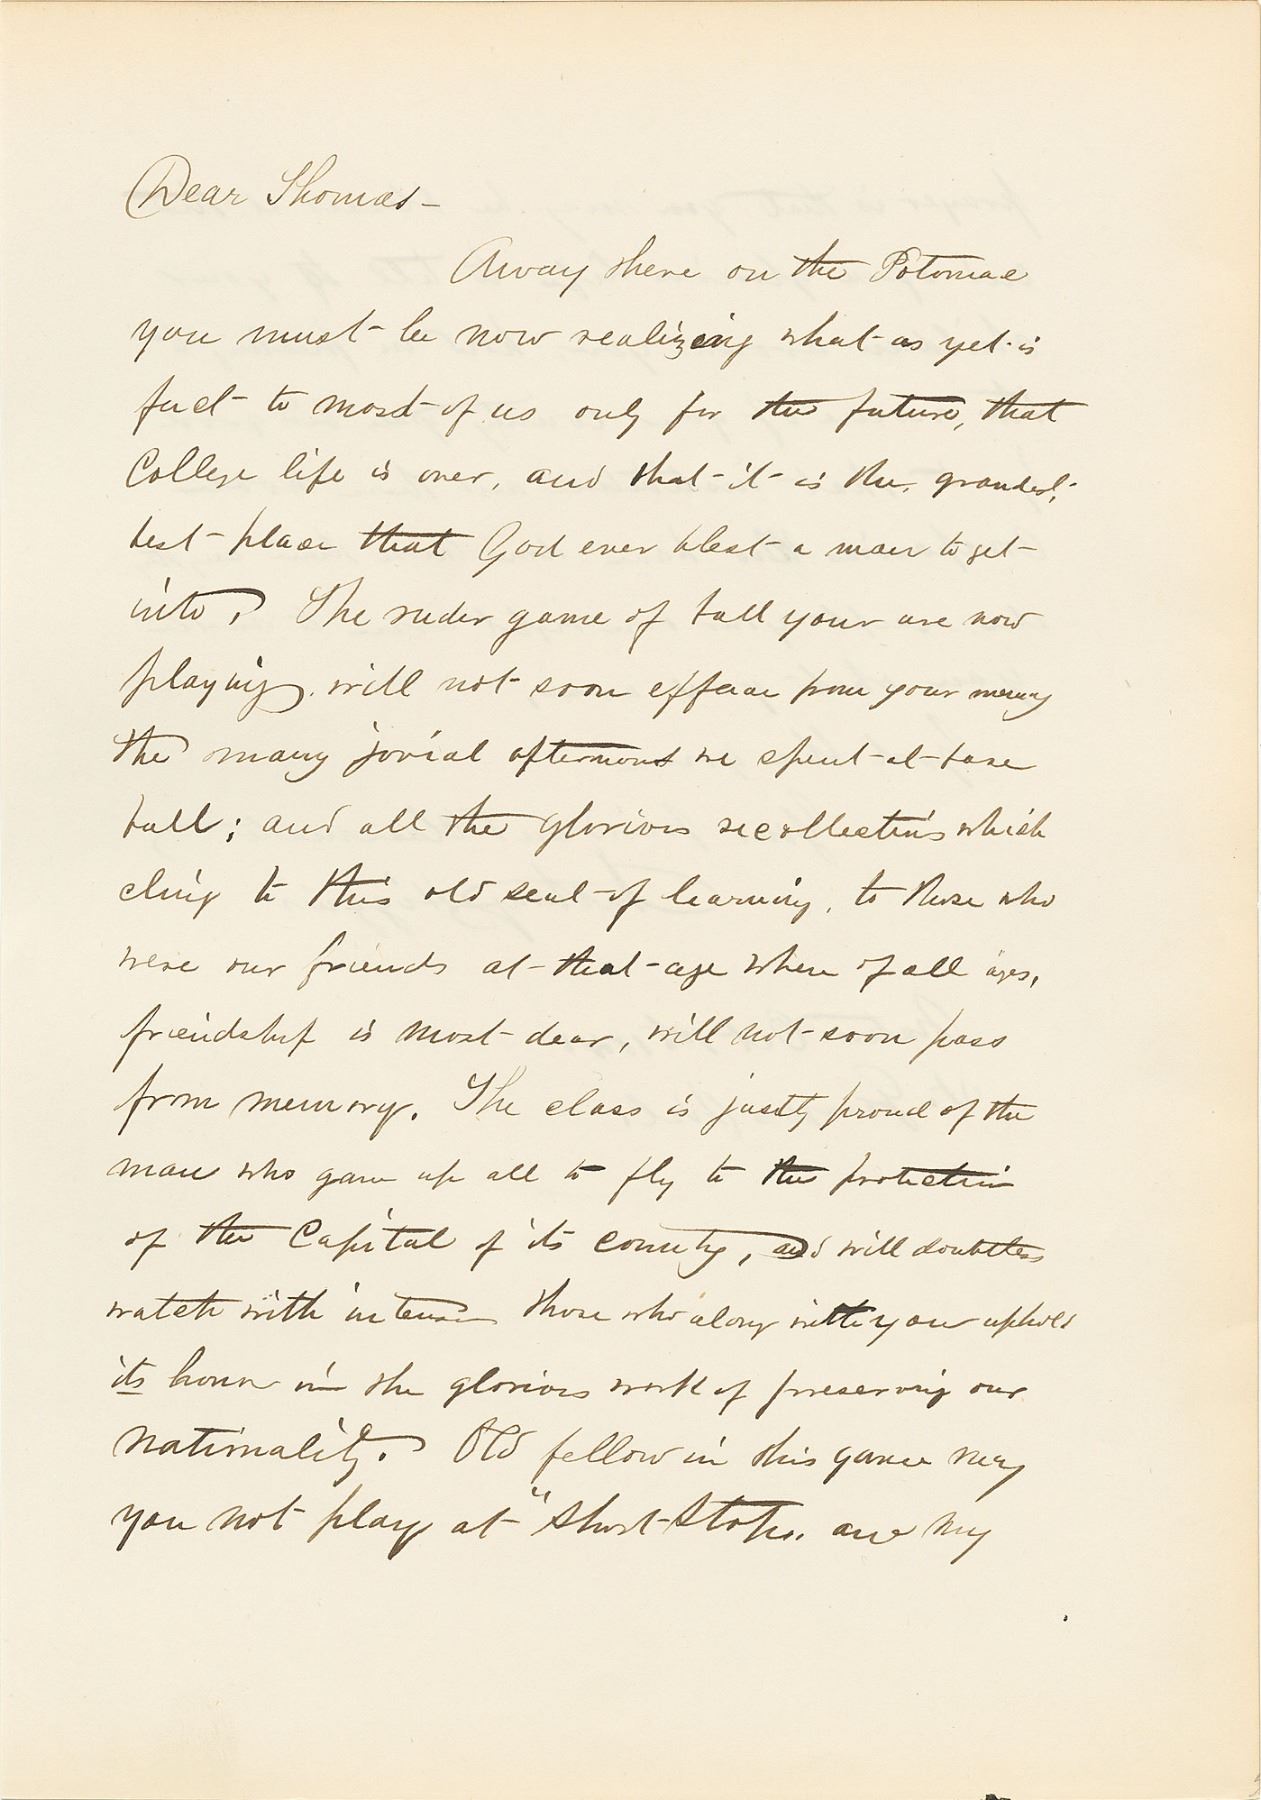 Dear Thomas –
Away there on the Potomac
you must be now realizing what as yet is
fact to most of us only for the future, that
College life is over, and that it is the grandest,
best place that God ever blest a man to get
into. The ruder game of ball your are now
playing will not soon efface from your memory
the many jovial afternoons we spent at base
ball; and all the glorious recollections which
cling to this old seat of learning, to those who
were our friends at that age when of all ages,
friendship is most dear, will not soon pass
from memory. The class is justly proud of the
man who gave up all to fly to the protection
of the Capital of its country, and will doubtless
watch with those who along with you uphold
its honor in the glorious work of preserving our
nationality. Old fellow in this game may
you not play at "Short Stop". are my